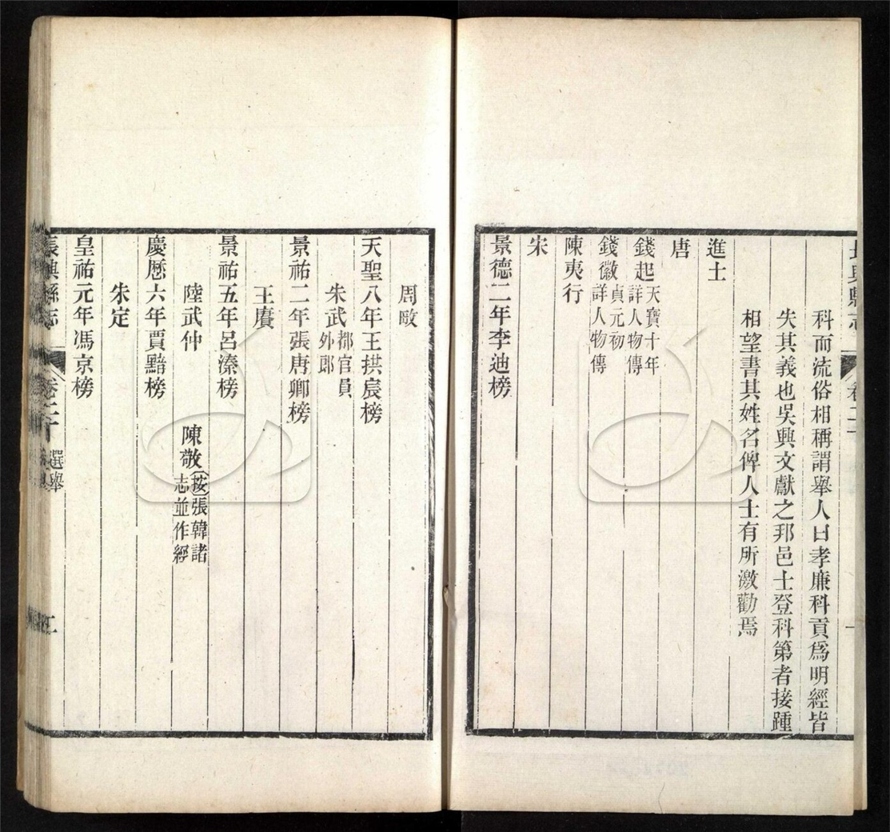 長興縣志
卷二十
一
科而流俗相稱謂舉人曰孝廉科貢爲明經皆
失其義也吳興文獻之邦邑士登科第者接踵
相望書其姓名俾人士有所激勸焉
進士
唐
錢起天寶十年詳人物傳
錢徽貞元初詳人物傳
陳夷行
宋
景德二年李迪榜
周敢
天聖八年王拱宸榜
朱武都官員外郎
景祐二年張唐卿榜
王賡
景祐五年呂溱榜
陸武仲 陳敬按張韓諸志並作經
慶歷六年賈黯榜
朱定
皇祐元年馮京榜
長興縣志
卷二十
選舉